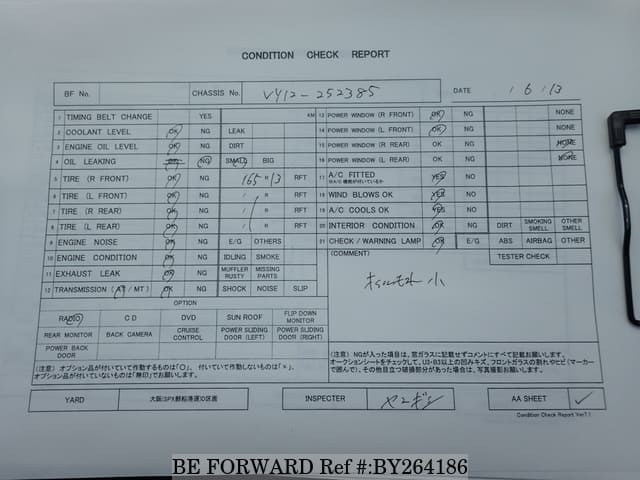 CONDITION CHECK REPORT
BF No. CHASSIS No. VY12-252385 DATE 1 6 1/3
1 TIMING BELT CHANGE YES KM 13 POWER WINDOW (R FRONT) OK NG NONE
2 COOLANT LEVEL OK NG LEAK 14 POWER WINDOW (L FRONT) OK NG NONE
3 ENGINE OIL LEVEL OK NG DIRT 15 POWER WINDOW (R REAR) OK NG NONE
4 OIL LEAKING OK NG SMALL BIG 16 POWER WINDOW (L REAR) OK NG NONE
5 TIRE (R FRONT) OK NG 165 R 13 RFT 17 A/C FITTED YES NO
6 TIRE (L FRONT) OK NG / R RFT 18 WIND BLOWS OK YES NO
7 TIRE (R REAR) OK NG / R RFT 19 A/C COOLS OK YES NO
8 TIRE (L REAR) OK NG / R RFT 20 INTERIOR CONDITION OK NG DIRT SMOKING SMELL OTHER SMELL
9 ENGINE NOISE OK NG E/G OTHERS 21 CHECK / WARNING LAMP OK E/G ABS AIRBAG OTHER
10 ENGINE CONDITION OK NG IDLING SMOKE (COMMENT) TESTER CHECK
11 EXHAUST LEAK OK NG MUFFLER RUSTY MISSING PARTS
12 TRANSMISSION (AT / MT) OK NG SHOCK NOISE SLIP
オイルモレ 小
OPTION
RADIO CD DVD SUN ROOF FLIP DOWN MONITOR
REAR MONITOR BACK CAMERA CRUISE CONTROL POWER SLIDING DOOR (LEFT) POWER SLIDING DOOR (RIGHT)
POWER BACK DOOR
(注意) オプション品が付いていて作動するものは「○」、付いていて作動しないものは「×」、
オプション品が付いていないものは「無印」でお願いします。
(注意) NGが入った項目は、窓ガラスに記載せずコメントにすべて記載お願いします。
オークションシートをチェックして、U3・B3以上の凹みキズ、フロントガラスの割れやヒビ(マーカー
で囲んで)、その他目立つ破損部分があった場合は、写真撮影お願いします。
YARD INSPECTER ヤナギシ AA SHEET ✓
Condition Check Report Ver7.1
BE FORWARD Ref #:BY264186